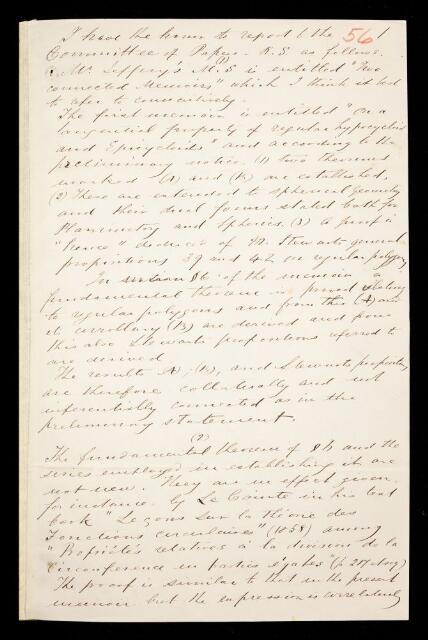 56
I have the honor to report to the
Committee of Papers R.S as follows.
Mr. Jeffery's M.S is entitled "Two
connected Memoirs", which I think it best
to refer to consecutively.
The first memoir is entitled "On a
tangential property of regular hypocycloids
and Epicycloids" and according to the
preliminary notice (1) two theorems
marked (A) and (B) are established,
(2) These are extended to spherical geometry
and their dual forms stated both for
Planimetry and Spherics. (3) A proof is
"hence" deduced of M. Stewart's general
propositions 39 and 42 on regular polygons
In section of the memoir a
fundamental theorem is proved relating
to regular polygons and from this (A) and
its corollary (B) are derived and from
this also Stewart's propositions referred to
are derived
The results (A), (B), and Stewart's propositions,
are therefore collaterally and not
inferentially connected as in the
preliminary statement
(2)
The fundamental theorem of and the
series employed in establishing it are
not new. They are in effect given
for instance by Le Cointe in his last
book "Leçons sur la théorie des
Fonctions circulaires" (1858) among
"Propriétés relatives à la division de la
Circonférence en parties égales
The proof is similar to that in the present
memoir but the expression is correlated